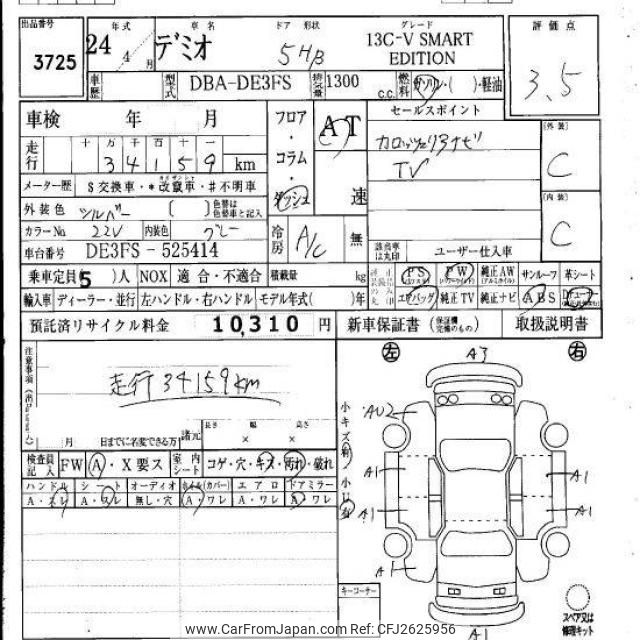 出品番号 年式 車名 ドア 形状 グレード 評価点
3725 24年 4月 デミオ 5HB 13C-V SMART EDITION 3.5
車歴 型式 DBA-DE3FS 排気量 1300 c.c. 燃料 ガソリン・( )・軽油
車検 年 月 フロア・コラム・ダッシュ AT 速 セールスポイント
カロッツェリアナビ
TV
外装 C
内装 C
走行 十 万 千 百 十 一
34159 km
メーター歴 $交換車・*改竄車・#不明車
外装色 シルバー 〔 〕 色替は色替車と記入
カラーNo. 22V 内装色 グレー
冷房 A/C 無
車台番号 DE3FS-525414
該当車は丸印 ユーザー仕入車
乗車定員(5)人 NOX 適合・不適合 積載量 kg PS PW 純正AW サンルーフ 革シート
輸入車 ディーラー・並行 左ハンドル・右ハンドル モデル年式( )年 エアバッグ 純正TV 純正ナビ ABS
預託済リサイクル料金 10,310 円 新車保証書 取扱説明書
注意事項
走行34159km
月 日までに名変できる方 諸元 長さ × 幅 × 高さ
検査員記入 FW A・X要ス 室内シート コゲ・穴・キズ・汚れ・破れ
ハンドル シート オーディオ ホイル(カバー) エアロ ドアミラー
A・スレ A・スレ 無し・穴 A・ワレ A・ワレ A・ワレ
左 A3 右
AU2
A1 A1
A1 A1
A1
A1
キーコーサー
スペア又は修理キット
www.CarFromJapan.com Ref: CFJ2625956